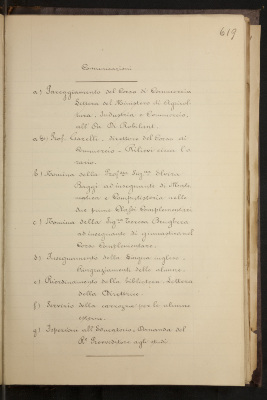 619
Comunicazioni
a) Pareggiamento del Corso di Commercio
Lettera del Ministero di Agricol
tura, Industria e Commercio,
all' On. Di Robilant.
a b) Prof. Cavalli, direttore del Corso di
Commercio - Rilievi circa l'o-
rario.
b) Nomina della Prof.
Baggi ad insegnante di Mate
matica e Computisteria nelle
due prime Classi Complementari.
c) Nomina della Sig.na
ad insegnante di ginnastica nel
Corso Complementare.
d) Insegnamento della Lingua inglese,
Ringraziamenti delle alunne.
e) Riordinamento della Biblioteca - Lettera
della Direttrice.
f) Servizio della carrozza per le alunne
esterne.
g) Ispezioni all'Educatorio, Domanda del
R. Provveditore agli studi.